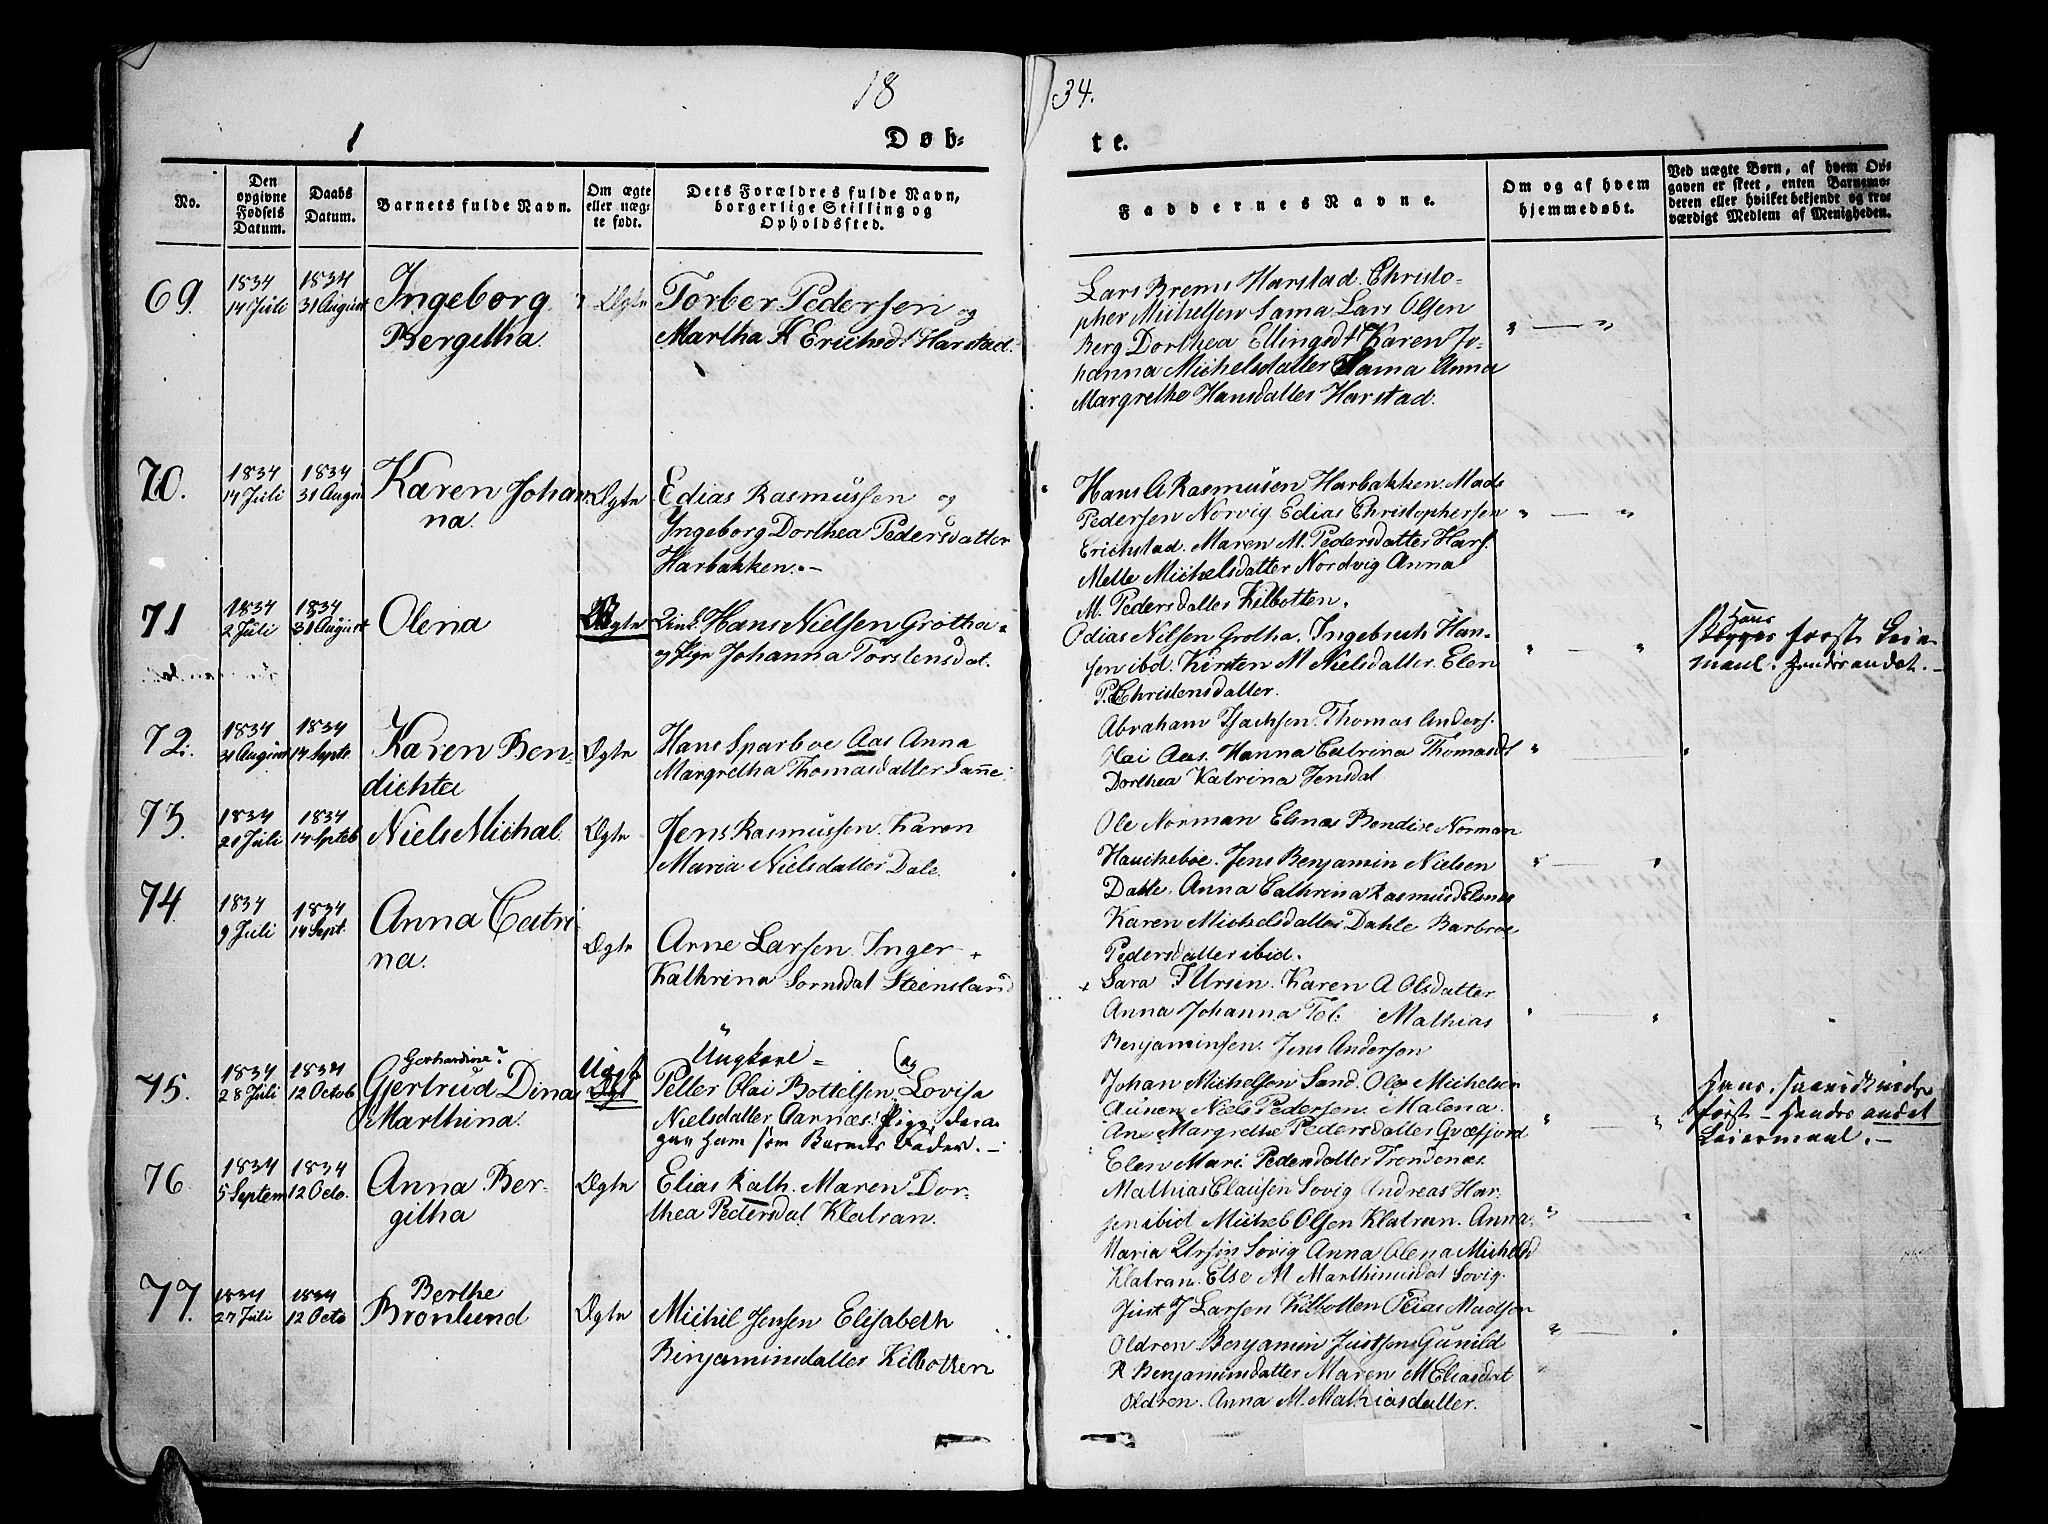 18
34.
Døb-
te.
No.
Den opgivne Fødsels Datum.
Daabs Datum.
Barnets fulde Navn.
Om ægte eller uægte født.
Dets Forældres fulde Navn, borgerlige Stilling og Opholdssted.
Faddernes Navne.
Om og af hvem hjemmedøbt.
Ved uægte Børn, af hvem Opgaven er skeet, enten Barnemoderen eller hvilket bekjendt og troværdigt Medlem af Menigheden.
69.
1834
14 Juli
1834
31 August
Ingeborg
Bergitha
Ægte
Torber Pedersen og
Martha K Erichsd. Harstad.
Lars Brems Harstad. Christo-
pher Michelsen Sama. Lars Olsen
Berg Dorthea Ellingsdt Karen Jo-
hanna Michelsdatter Sama Anna
Margrethe Hansdatter Harstad.
70.
1834
14 Juli
1834
31 Augu
Karen Johan
na.
Ægte
Edias Rasmussen og
Ingeborg Dorthea Pedersdatter
Harbakken.
Hans A Rasmusen Harbakken. Mads
Pedersen Norvig. Edias Christophersen
Erichstad. Maren M. Pedersdatter Hars.
Melle Michelsdatter Nordvig Anna
M. Pedersdatter Kilbotten.
71
1834
2 Juli
1834
31 August
Olena
Ægte
Hans Nielsen Grotha
og Pige Johanna Torstensdat.
Odias Nilsen Grotha. Ingebrech Han-
sen ibd. Kirsten M. Nielsdatter. Elen
P. Christensdatter.
Hans
Begges første Leier-
maal. Hendes andet.
72.
1834
31 August
1834
14 Septe
Karen Ben-
dichte
Ægte
Hans Sparboe Aas Anna
Margretha Thomasdatter Sanne
Abraham Isachsen. Thomas Anders.
Olai Aas. Hanna Catrina Thomasdt
Dorthea Katrina Jensdat
73.
1834
21 Juli
1834
14 Septeb
Niels Michal.
Ægte
Jens Rasmussen. Karen
Maria Nielsdatter Dale.
Ole Norman Elsnæs Bendixe Norman
Haukeboe. Jens Benjamin Nielsen
Dahle. Anna Cathrina Rasmusd Elsnæs
Karen Michelsdatter Dahle Barbroe
Pedersdatter ibid.
74
1834
9 Juli
1834
14 Sept.
Anna Catri
na.
Ægte
Arne Larsen. Inger
Kathrina Sornsdat Steensland
Sara I Ursin. Karen A Olsdatter
Anna Johanna Tob. Mathias
Benjaminsen. Jens Anderson
75.
1834
28 Juli
1834
12 Octob
Gerhardine?
Gjertrud Dina
Marthina.
Uægte
Ægt
Ungkarl
Petter Olai Bottelsen og Lovisa
Nielsdatter Aarnæs. Pige,
ham som Barnets Fader.
Johan Michelsen Sand. Ole Michelsen
Aunen Niels Pedersen. Malena
Ane Margrethe Pedersdatter Græfjord
Elen Mari Pedersdatter Trondenæs.
Hans,
først - Hendes andet
Leiermaal.
76
1834
5 Septem
1834
12 Octo.
Anna Ber-
githa
Ægte
Elias Kath. Maren Dor-
thea Pedersdat Klatran.
Mathias Clausen Sovig Andreas Har-
sen ibid Michel Olsen Klatran. Anna
Maria Ursin Sovig Anna Olena Michelsd
Klatran. Else M Marthinusdat Sovig.
77.
1834
27 Juli
1834
12 Octo
Berthe
Bronlund
Ægte
Michel Jensen Elisabeth
Binjaminsdatter Kilbotten
Just J Larsen Kilbotten Peias Madsen
Oldren Benjamin Justsen Gunild
R Benjaminsdatter Maren M Eliasdat
Oldren. Anna M. Mathiasdatter.